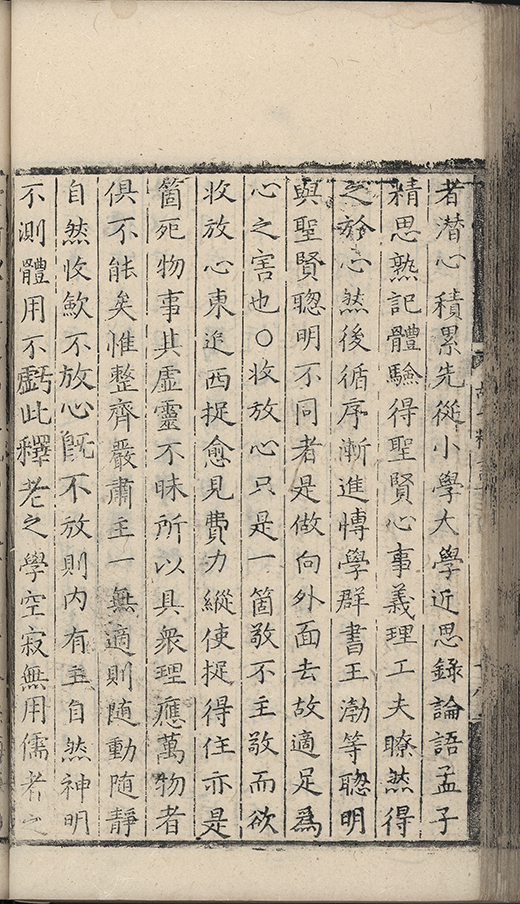 者潛心積累先從小學大學近思錄論語孟子
精思熟記體驗得聖賢心事義理工夫瞭然得
之於心然後循序漸進博學群書王渤等聦明
與聖賢聦明不同者是做向外面去故適足爲
心之害也○收放心只是一箇敬不主敬而欲
收放心東追西捉愈見費力縱使捉得住亦是
箇死物事其虛靈不昧所以具衆理應萬物者
俱不能矣惟整齊嚴肅主一無適則随動随靜
自然收斂不放心旣不放則内有主自然神明
不測體用不虧此釋老之學空寂無用儒者之